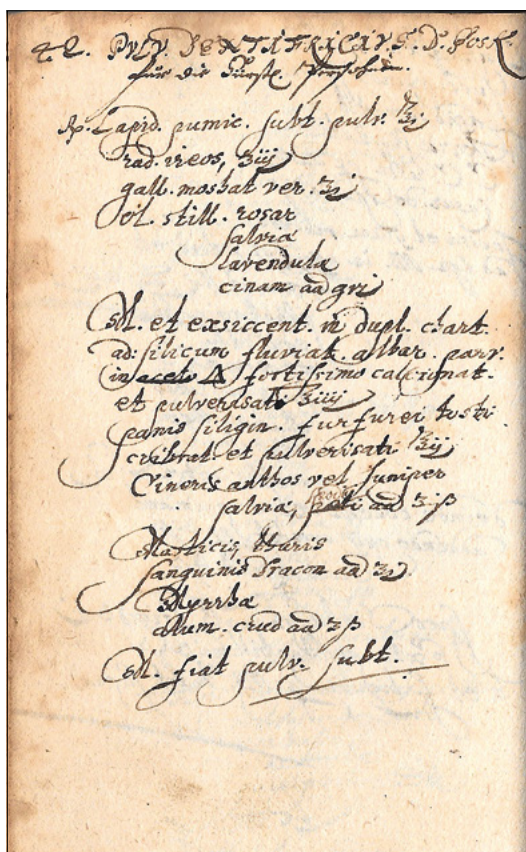 42. PVLV. DENTIFRICIVS. D. Posk.
für die Fürstl. Persohnen.
Rp. Lapid. pumic. subt. pulv. ℥j
rad. ireos, ʒiij
gall. moshat ver. ʒj
Ol. still. rosar
salviæ
lavendulæ
cinam aā gvj
M. et exsiccent. in dupl. chart.
ad: silicum fluviat. albar. parv.
in aceto 🜂 fortissimo calcignat.
et pulverisati ℥iiij
panis siligin. furfurei tosti
cribrat. et pulverisati ℥ij
Cineris anthos vel Juniper
salviæ, aā ʒiß
Masticis, thuris
sanguinis Dracon aā ʒj
Myrrhæ
alum. crud aā ʒß
M. fiat pulv. subt.